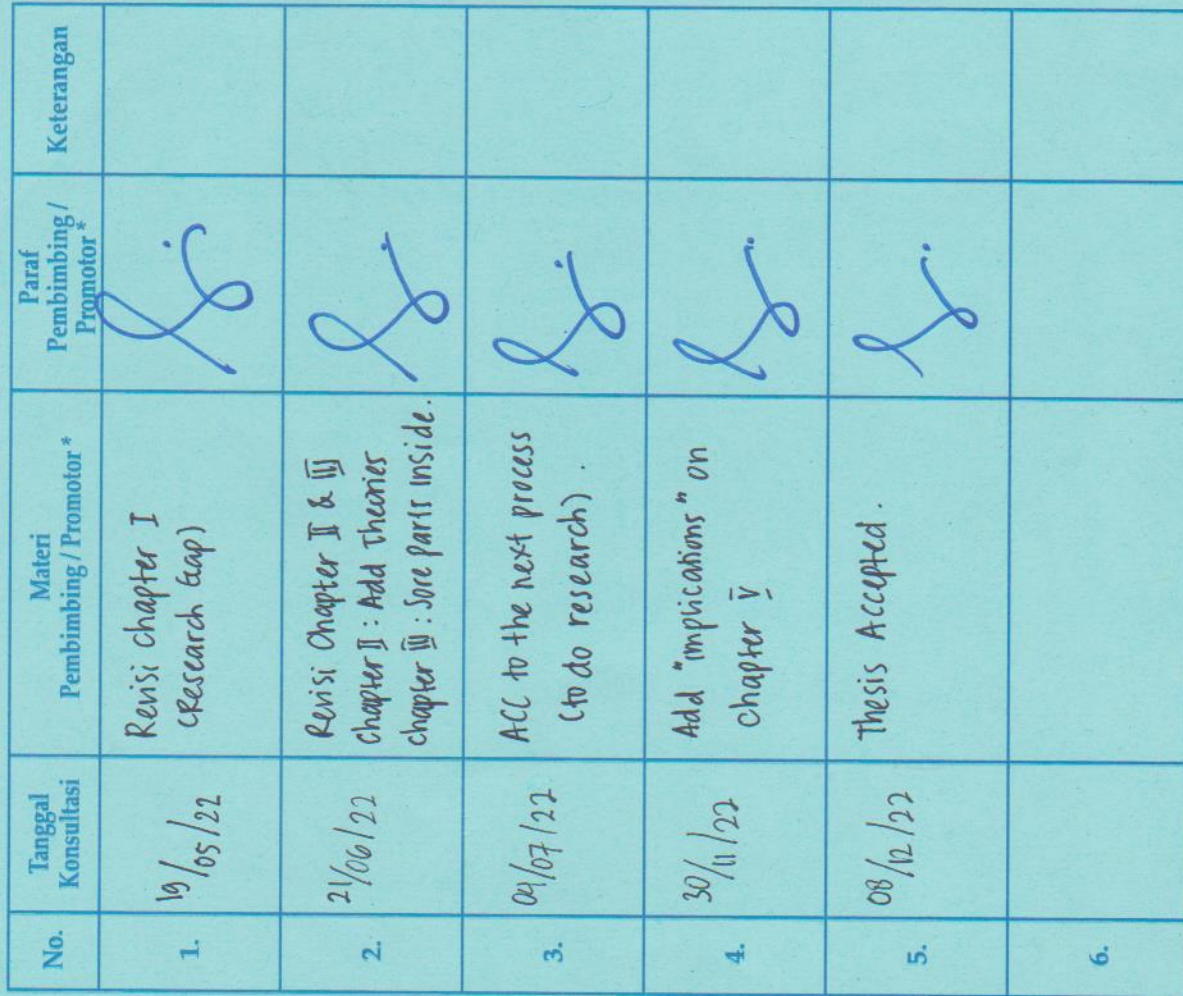 No.
Tanggal
Konsultasi
Materi
Pembimbing / Promotor *
Paraf
Pembimbing /
Promotor *
Keterangan
1.
19/05/22
Revisi chapter I
(Research Gap)
2.
21/06/22
Revisi Chapter II & III
Chapter II : Add Theories
chapter III : Sore parts inside.
3.
04/07/22
ACC to the next process
(to do research).
4.
30/11/22
Add "implications" on
chapter V
5.
08/12/22
Thesis Accepted.
6.